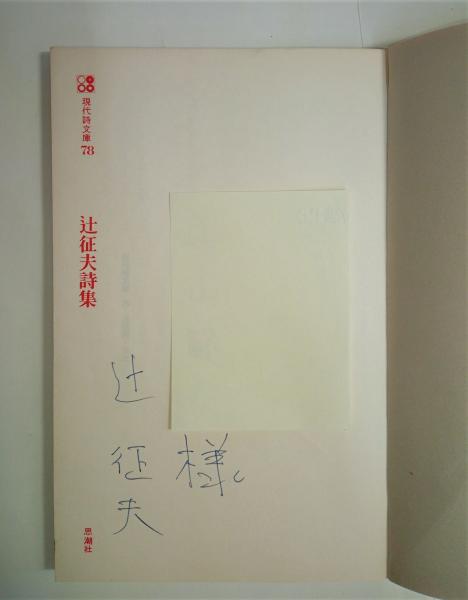 現代詩文庫 78
辻征夫詩集
様
辻征夫
思潮社